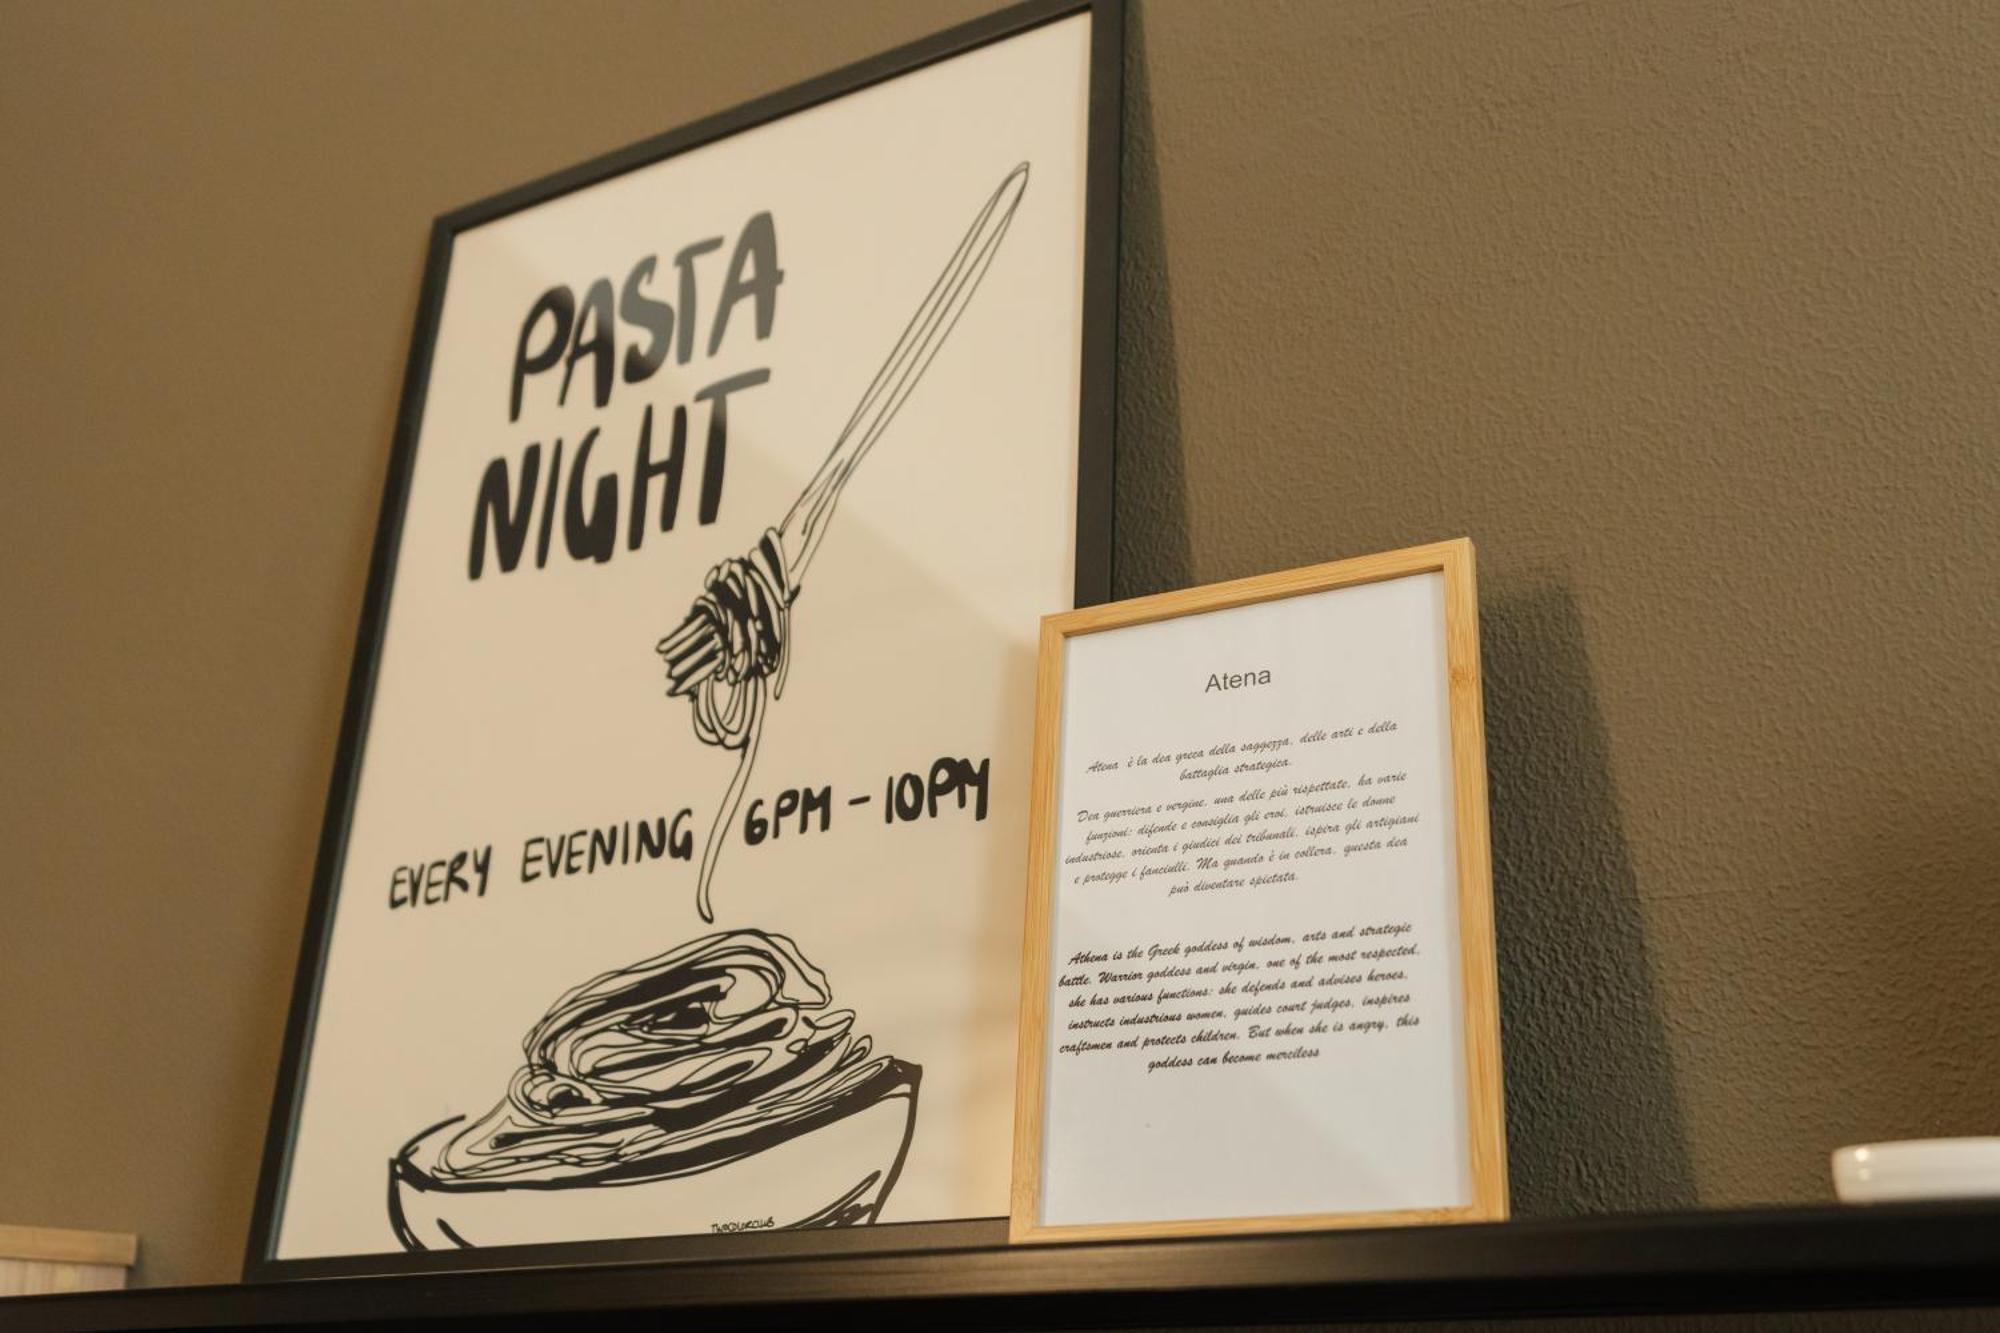 PASTA
NIGHT
EVERY EVENING 6PM - 10PM
TWOCOLORCLUB
Atena
Atena è la dea greca della saggezza, delle arti e della
battaglia strategica.
Dea guerriera e vergine, una delle più rispettate, ha varie
funzioni: difende e consiglia gli eroi, istruisce le donne
industriose, orienta i giudici dei tribunali, ispira gli artigiani
e protegge i fanciulli. Ma quando è in collera, questa dea
può diventare spietata.
Athena is the Greek goddess of wisdom, arts and strategic
battle. Warrior goddess and virgin, one of the most respected,
she has various functions: she defends and advises heroes,
instructs industrious women, guides court judges, inspires
craftsmen and protects children. But when she is angry, this
goddess can become merciless